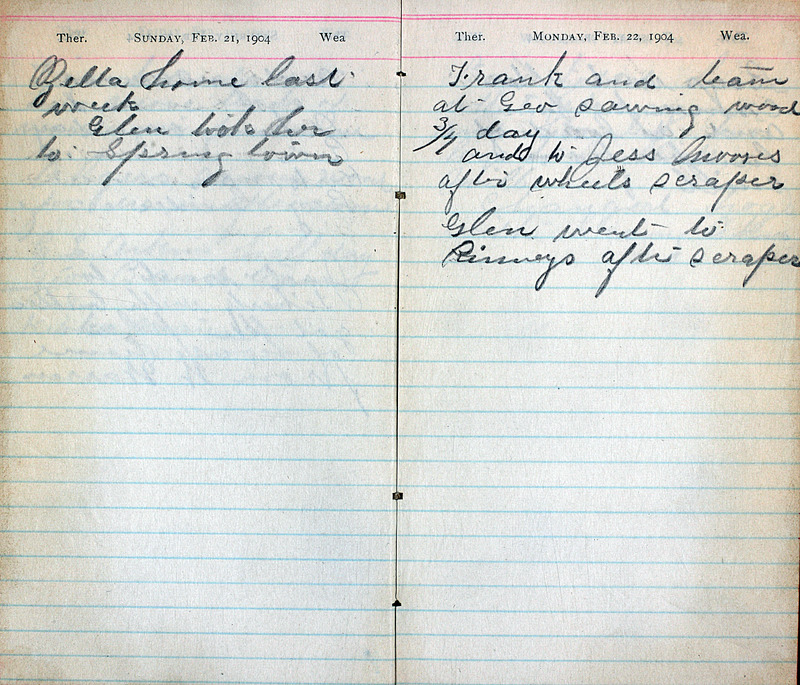 Ther. SUNDAY, FEB. 21, 1904 Wea
Zella home last
week
Glen took her
to Spring town
Ther. MONDAY, FEB. 22, 1904 Wea.
Frank and team
at Geo sawing wood
3/4 day
and to Jess Moores
after wheels scraper
Glen went to
Rinneys after scraper